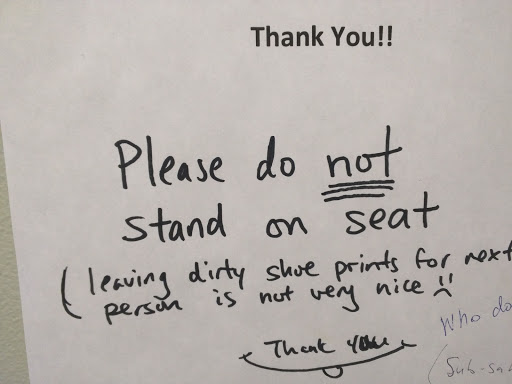 Thank You!!
Please do not
stand on seat
(leaving dirty shoe prints for next
person is not very nice !!
Thank you
Who do
(Sub-